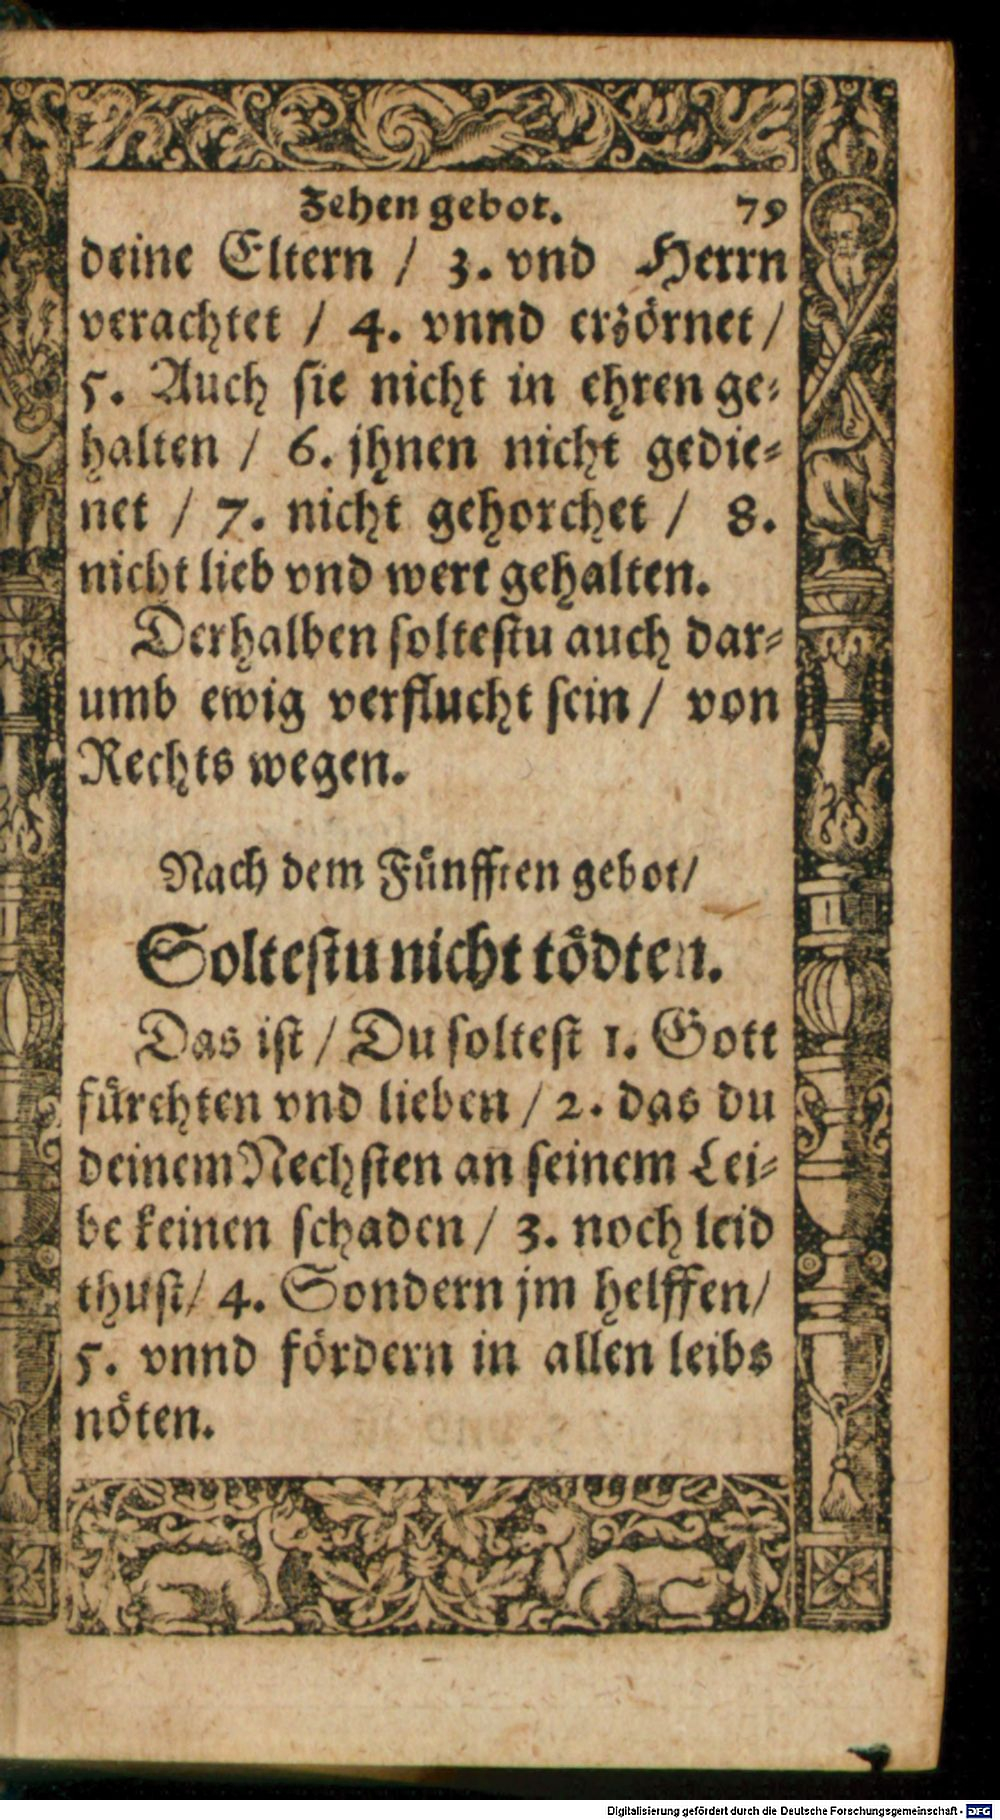 Zehen gebot. 79
deine Eltern / 3. vnd Herrn
verachtet / 4. vnnd erzörnet /
5. Auch sie nicht in ehren ge⸗
halten / 6. jhnen nicht gedie⸗
net / 7. nicht gehorchet / 8.
nicht lieb vnd wert gehalten.
Derhalben soltestu auch dar⸗
umb ewig verflucht sein / von
Rechts wegen.
Nach dem Fünfften gebot /
Soltestu nicht tödten.
Das ist / Du soltest 1. Gott
fürchten vnd lieben / 2. das du
deinem Nechsten an seinem Lei⸗
be keinen schaden / 3. noch leid
thust / 4. Sondern jm helffen /
5. vnnd fördern in allen leibs
nöten.
Digitalisierung gefördert durch die Deutsche Forschungsgemeinschaft - DFG